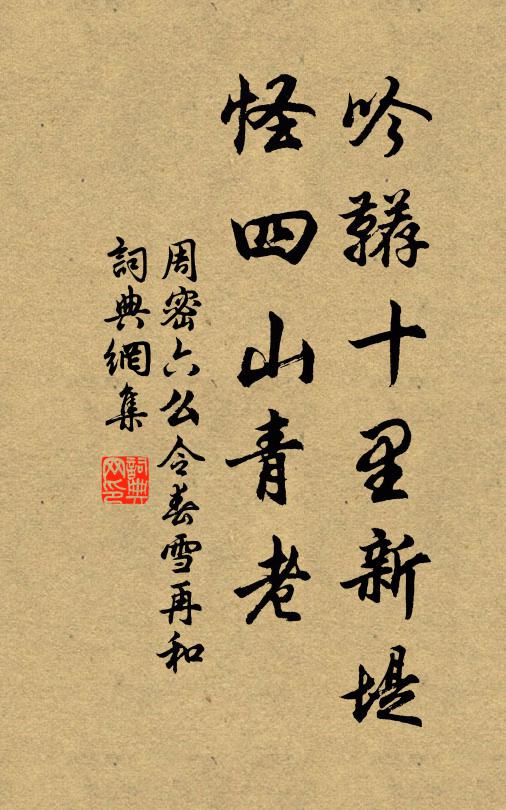 吟鞯十里新堤
怪四山青老
周密六么令春雪再和
詞典網集
詞典网印